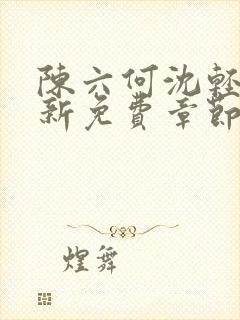 陳六何沈輕
新免費章節
煌舞